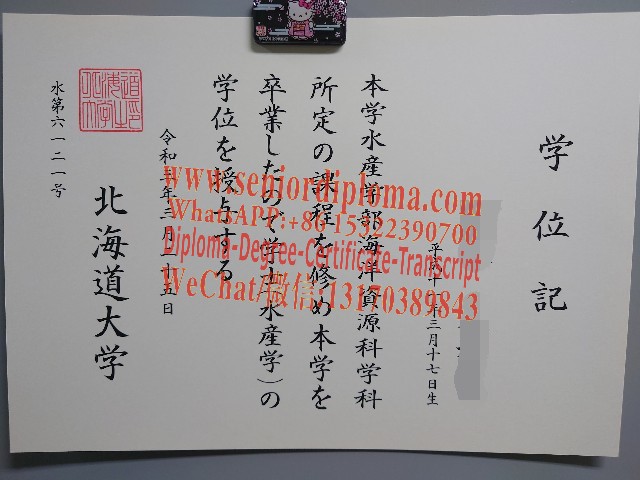 学位記
平成十年三月十七日生
本学水産学部海洋資源科学科
所定の課程を修め本学を
卒業したので学士(水産学)の
学位を授与する
令和年三月二五日
北海道大学
水第六一二一号
www.seniordiploma.com
WhatsAPP:+86 15322390700
Diploma-Degree-Certificate-Transcript
WeChat/微信:13170389843